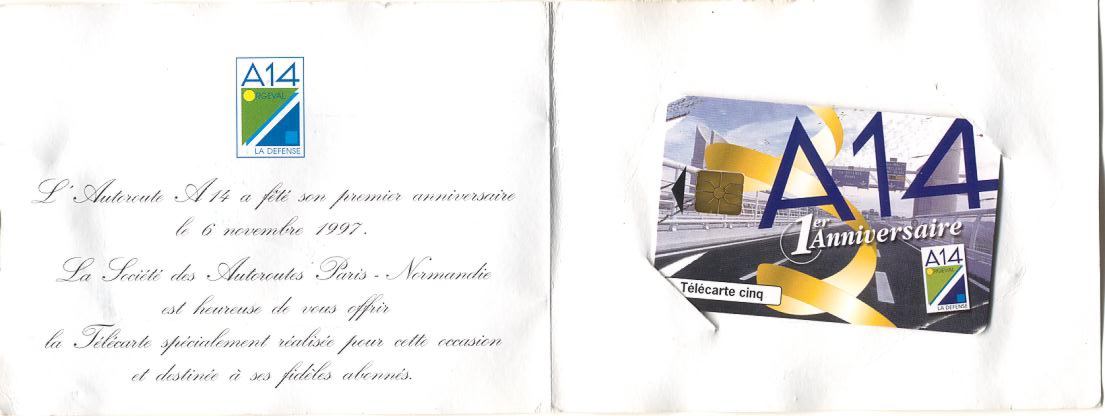 A14
ORGEVAL
LA DEFENSE
L'Autoroute A14 a fêté son premier anniversaire
le 6 novembre 1997.
La Société des Autoroutes Paris - Normandie
est heureuse de vous offrir
la Télécarte spécialement réalisée pour cette occasion
et destinée à ses fidèles abonnés.
A14
1er Anniversaire
Télécarte cinq
A14
ORGEVAL
LA DEFENSE